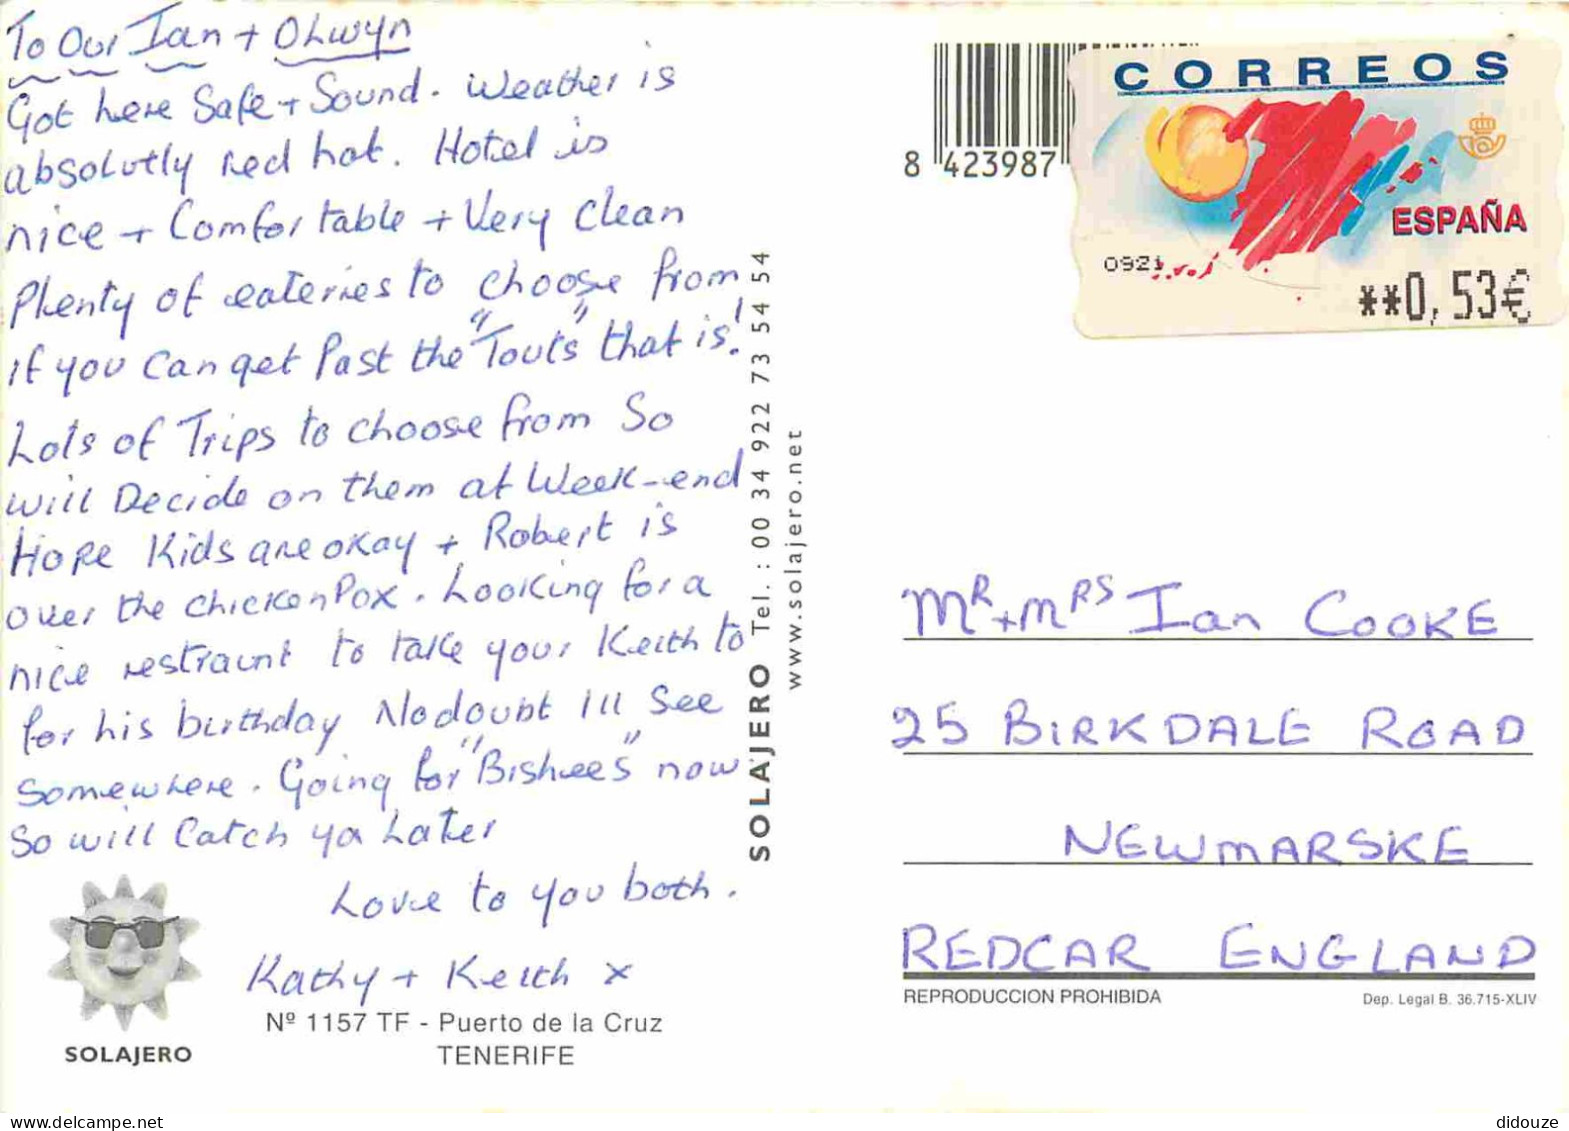 To Our Ian + Olwyn
Got here Safe + Sound. Weather is
absolutly red hot. Hotel is
nice + Comfortable + Very Clean
Plenty of eateries to choose from
if you can get Past the "Touts" that is!
Lots of Trips to choose from So
will Decide on them at Week-end
Hope Kids are okay + Robert is
over the chicken Pox. Looking for a
nice restraunt to take your Keith to
for his birthday Nodoubt ill See
Somewhere. Going for "Bishees" now
So will Catch ya Later
Love to you both.
Kathy + Keith x
Nº 1157 TF - Puerto de la Cruz
TENERIFE
SOLAJERO
SOLAJERO Tel. : 00 34 922 73 54 54
www.solajero.net
8 423987
CORREOS
ESPAÑA
0921
**0,53€
Mr + Mrs Ian COOKE
25 BIRKDALE ROAD
NEWMARSKE
REDCAR ENGLAND
REPRODUCCION PROHIBIDA
Dep. Legal B. 36.715-XLIV
didouze